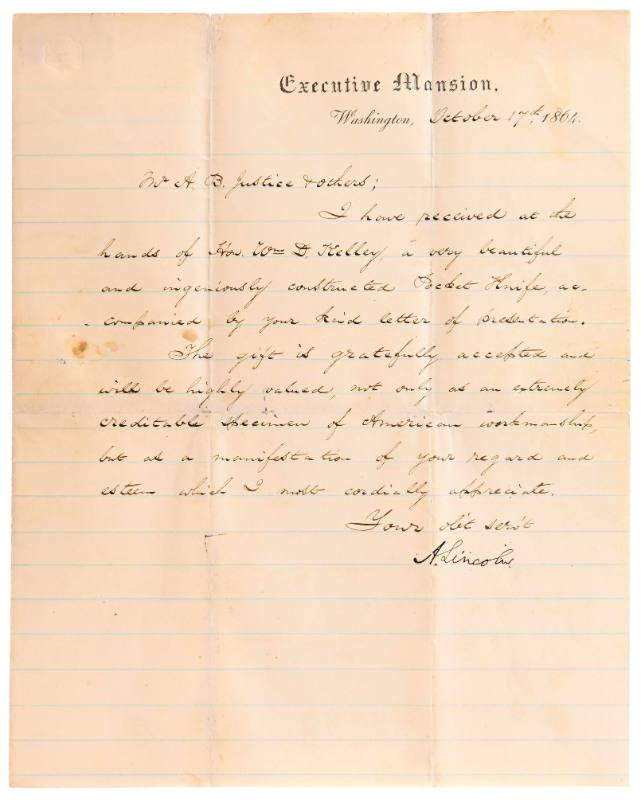 Executive Mansion,
Washington, October 17th, 1864.
Mr A. B. Justice & others;
I have received at the
hands of Hon. Wm D. Kelley, a very beautiful
and ingeniously constructed Pocket Knife, ac-
-companied by your kind letter of presentation.
The gift is gratefully accepted and
will be highly valued, not only as an extremely
creditable specimen of American workmanship,
but as a manifestation of your regard and
esteem which I most cordially appreciate.
Your ob't serv't
A. Lincoln.